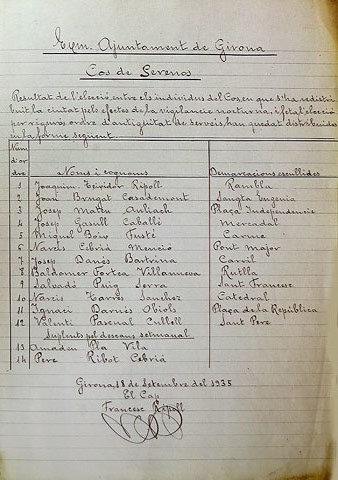 Exm. Ajuntament de Girona
Cos de Serenos
Resultat de l'elecció entre els individus del Cos en que s'ha redistri
buit la ciutat pels efectes de la vigilancia nocturna, i feta l'elecció
per rigurós ordre d'antiguitat de serveis, han quedat distribuides
en la forma següent.
Núm. d'or dre Noms i cognoms Demarcacions escullides
1 Joaquim Teixidor Ripoll Rambla
2 Joan Brugat Casademont Santa Eugenia
3 Josep Mateu Plaça Independencia
4 Josep Gasull Caballé Mercadal
5 Miquel Boix Fusté Carme
6 Narcís Cebriá Menció Pont Major
7 Josep Danés Bartrina Carril
8 Baldomer Fortea Villanueva Rutlla
9 Salvadó Puig Serra Sant Francesc
10 Narcís Torres Sanchez Catedral
11 Ignaci Darnés Obiols Plaça de la República
12 Valentí Pascual Cullell Sant Pere
Suplents pel descans setmanal
13 Amadeu Pla Vila
14 Pere Ribot Cebriá
Girona, 18 de Setembre del 1935
El Cap
Francesc Ripoll